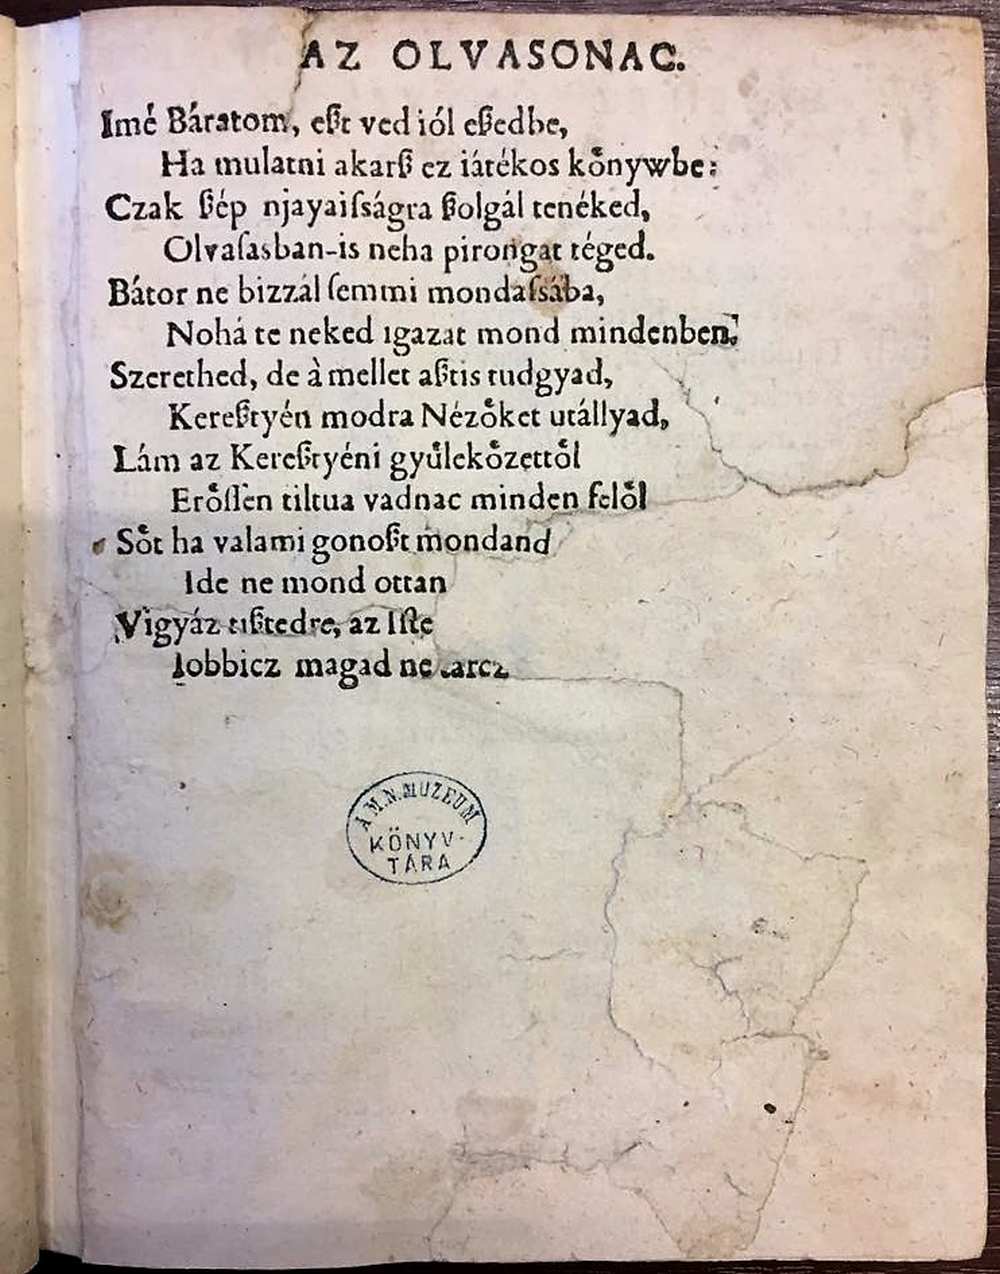 AZ OLVASONAC.
Imé Báratom, eßt ved iól eßedbe,
Ha mulatni akarß ez iátékos koͤnywbe:
Czak ßép njayaiſságra ßolgál tenéked,
Olvaſasban-is neha pirongat téged.
Bátor ne bizzál ſemmi mondaſsába,
Nohá te neked igazat mond mindenben.
Szerethed, de à mellet aßtis tudgyad,
Kereßtyén modra Nézoͤket utállyad,
Lám az Kereßtyéni gyuͤlekoͤzettoͤl
Eroͤſſen tiltua vadnac minden feloͤl
Soͤt ha valami gonoßt mondand
Ide ne mond ottan
Vigyáz tißtedre, az Iſte
Iobbicz magad ne tarcz
A M.N.MUZEUM
KÖNYV-
TÁRA